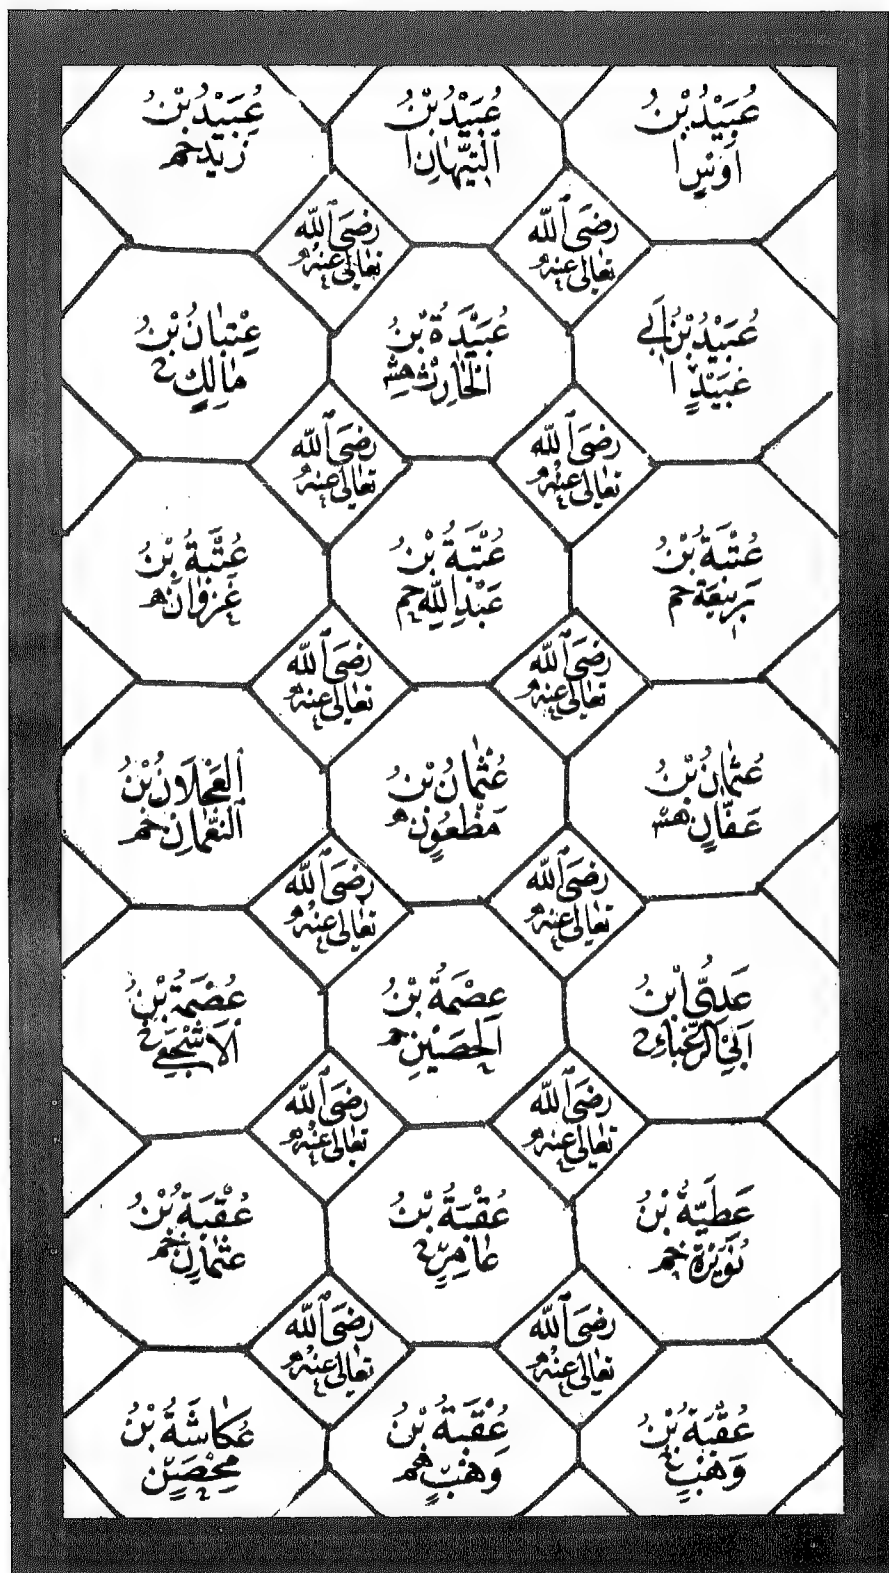 عُبَيْدُ بْنُ
اَوْسٍ ا
عُبَيْدُ بْنُ
ٱلتَّيِّهَانِ ا
عُبَيْدُ بْنُ
زَيْدٍ خم
رَضِيَ ٱللّٰه
تَعَالٰى عَنْهُ
رَضِيَ ٱللّٰه
تَعَالٰى عَنْهُ
عُبَيْدُ بْنُ اَبِي
عُبَيْدٍ ا
عُبَيْدَةُ بْنُ
الْحَارِثِ هش
عِتْبَانُ بْنُ
مَالِكٍ خ
رَضِيَ ٱللّٰه
تَعَالٰى عَنْهُ
رَضِيَ ٱللّٰه
تَعَالٰى عَنْهُ
عُتْبَةُ بْنُ
رَبِيْعَةَ خم
عُتْبَةُ بْنُ
عَبْدِ اللّٰهِ خم
عُتْبَةُ بْنُ
غَزْوَانَ ه
رَضِيَ ٱللّٰه
تَعَالٰى عَنْهُ
رَضِيَ ٱللّٰه
تَعَالٰى عَنْهُ
عُثْمَانُ بْنُ
عَفَّانَ هش
عُثْمَانُ بْنُ
مَظْعُوْنٍ ه
ٱلْعَجْلَانُ بْنُ
ٱلنُّعْمَانِ خم
رَضِيَ ٱللّٰه
تَعَالٰى عَنْهُ
رَضِيَ ٱللّٰه
تَعَالٰى عَنْهُ
عَدِيُّ ابْنُ
اَبِي الزَّغْبَاءِ خ
عِصْمَةُ بْنُ
الْحُصَيْنِ خم
عُصَمَةُ بْنُ
ٱلْاَشْجَعِيّ خ
رَضِيَ ٱللّٰه
تَعَالٰى عَنْهُ
رَضِيَ ٱللّٰه
تَعَالٰى عَنْهُ
عَطِيَّةُ بْنُ
نُوَيْرَةَ خم
عُقْبَةُ بْنُ
عَامِرٍ خ
عُقْبَةُ بْنُ
عُثْمَانَ خم
رَضِيَ ٱللّٰه
تَعَالٰى عَنْهُ
رَضِيَ ٱللّٰه
تَعَالٰى عَنْهُ
عُقْبَةُ بْنُ
وَهْبٍ خ
عُقْبَةُ بْنُ
وَهْبٍ هم
عُكَاشَةُ بْنُ
مِحْصَنٍ